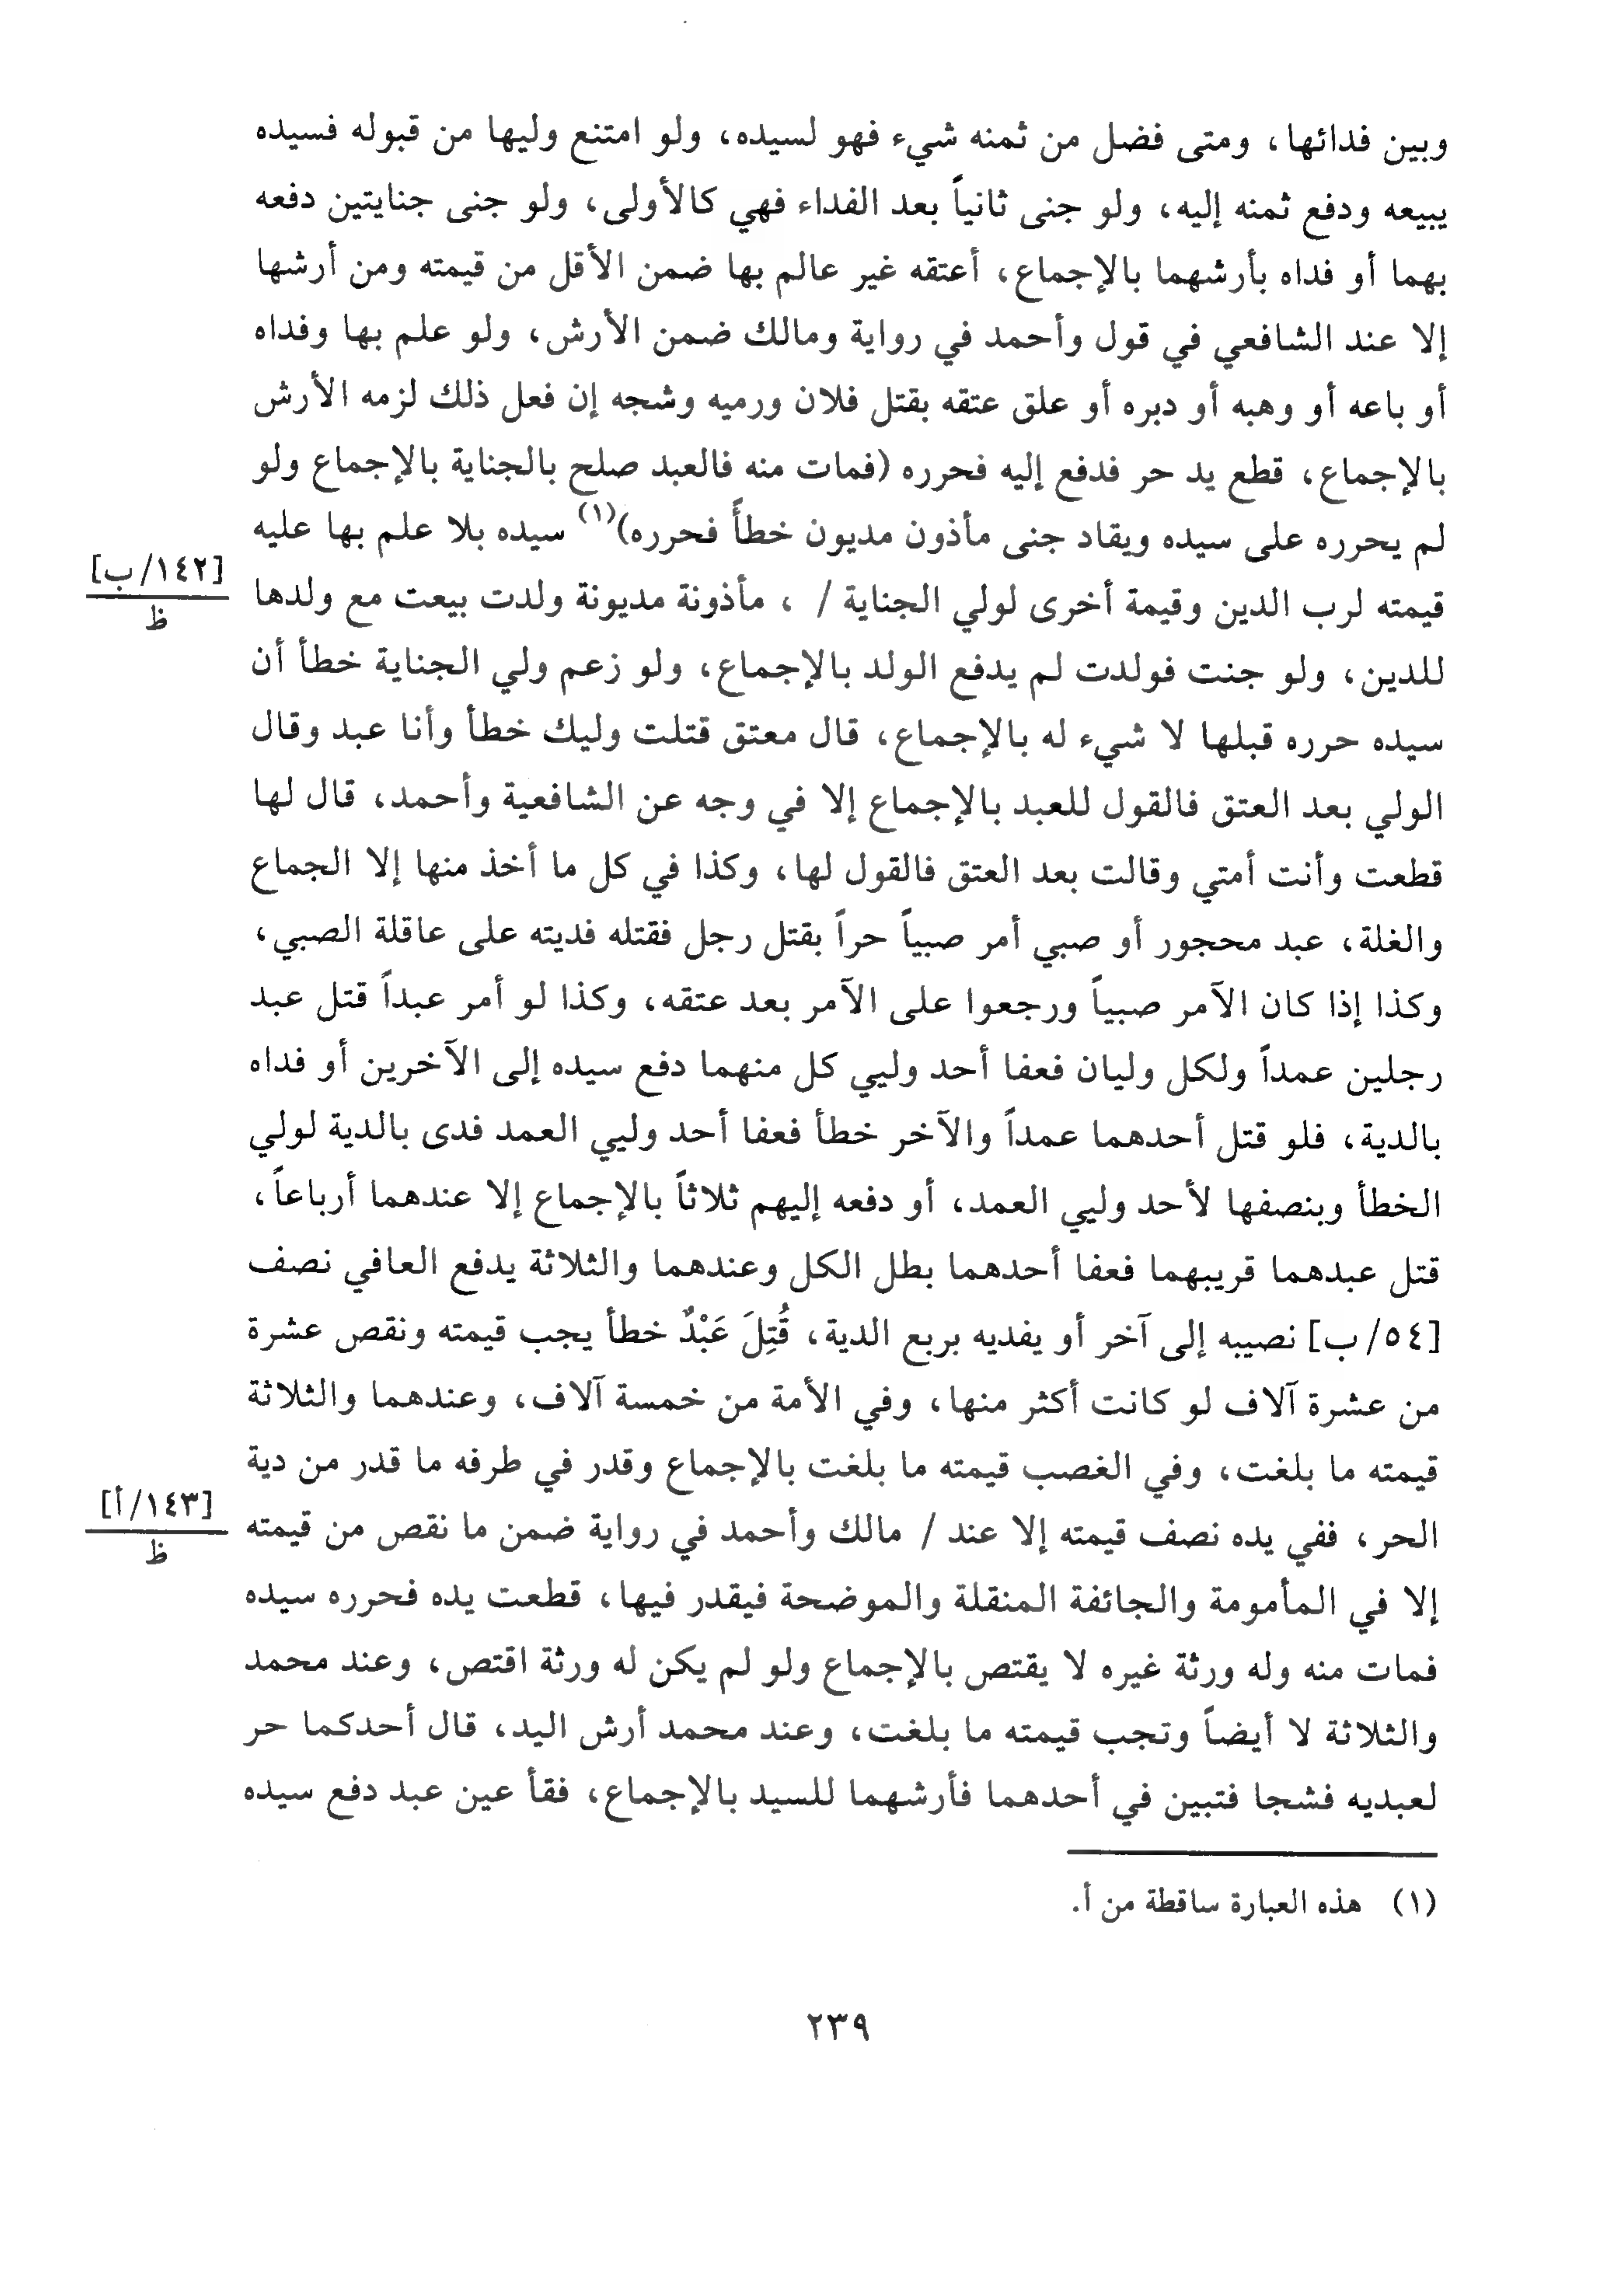 وبين فدائها، ومتى فضل من ثمنه شيء فهو لسيده، ولو امتنع وليها من قبوله فسيده
يبيعه ودفع ثمنه إليه، ولو جنى ثانياً بعد الفداء فهي كالأولى، ولو جنى جنايتين دفعه
بهما أو فداه بأرشهما بالإجماع، أعتقه غير عالم بها ضمن الأقل من قيمته ومن أرشها
إلا عند الشافعي في قول وأحمد في رواية ومالك ضمن الأرش، ولو علم بها وفداه
أو باعه أو وهبه أو دبره أو علق عتقه بقتل فلان ورميه وشجه إن فعل ذلك لزمه الأرش
بالإجماع، قطع يد حر فدفع إليه فحرره (فمات منه فالعبد صلح بالجناية بالإجماع ولو
لم يحرره على سيده ويقاد جنى مأذون مديون خطأً فحرره)(١) سيده بلا علم بها عليه
[١٤٢/ب]
ظ
قيمته لرب الدين وقيمة أخرى لولي الجناية / ، مأذونة مديونة ولدت بيعت مع ولدها
للدين، ولو جنت فولدت لم يدفع الولد بالإجماع، ولو زعم ولي الجناية خطأ أن
سيده حرره قبلها لا شيء له بالإجماع، قال معتق قتلت وليك خطأ وأنا عبد وقال
الولي بعد العتق فالقول للعبد بالإجماع إلا في وجه عن الشافعية وأحمد، قال لها
قطعت وأنت أمتي وقالت بعد العتق فالقول لها، وكذا في كل ما أخذ منها إلا الجماع
والغلة، عبد محجور أو صبي أمر صبياً حراً بقتل رجل فقتله فديته على عاقلة الصبي،
وكذا إذا كان الآمر صبياً ورجعوا على الآمر بعد عتقه، وكذا لو أمر عبداً قتل عبد
رجلين عمداً ولكل وليان فعفا أحد وليي كل منهما دفع سيده إلى الآخرين أو فداه
بالدية، فلو قتل أحدهما عمداً والآخر خطأ فعفا أحد وليي العمد فدى بالدية لولي
الخطأ وبنصفها لأحد وليي العمد، أو دفعه إليهم ثلاثاً بالإجماع إلا عندهما أرباعاً،
قتل عبدهما قريبهما فعفا أحدهما بطل الكل وعندهما والثلاثة يدفع العافي نصف
[٥٤/ب] نصيبه إلى آخر أو يفديه بربع الدية، قُتِلَ عَبْدٌ خطأ يجب قيمته ونقص عشرة
من عشرة آلاف لو كانت أكثر منها، وفي الأمة من خمسة آلاف، وعندهما والثلاثة
قيمته ما بلغت، وفي الغصب قيمته ما بلغت بالإجماع وقدر في طرفه ما قدر من دية
[١٤٣/أ]
ظ
الحر، ففي يده نصف قيمته إلا عند / مالك وأحمد في رواية ضمن ما نقص من قيمته
إلا في المأمومة والجائفة المنقلة والموضحة فيقدر فيها، قطعت يده فحرره سيده
فمات منه وله ورثة غيره لا يقتص بالإجماع ولو لم يكن له ورثة اقتص، وعند محمد
والثلاثة لا أيضاً وتجب قيمته ما بلغت، وعند محمد أرش اليد، قال أحدكما حر
لعبديه فشجا فتبين في أحدهما فأرشهما للسيد بالإجماع، فقأ عين عبد دفع سيده
(١) هذه العبارة ساقطة من أ.
٢٣٩